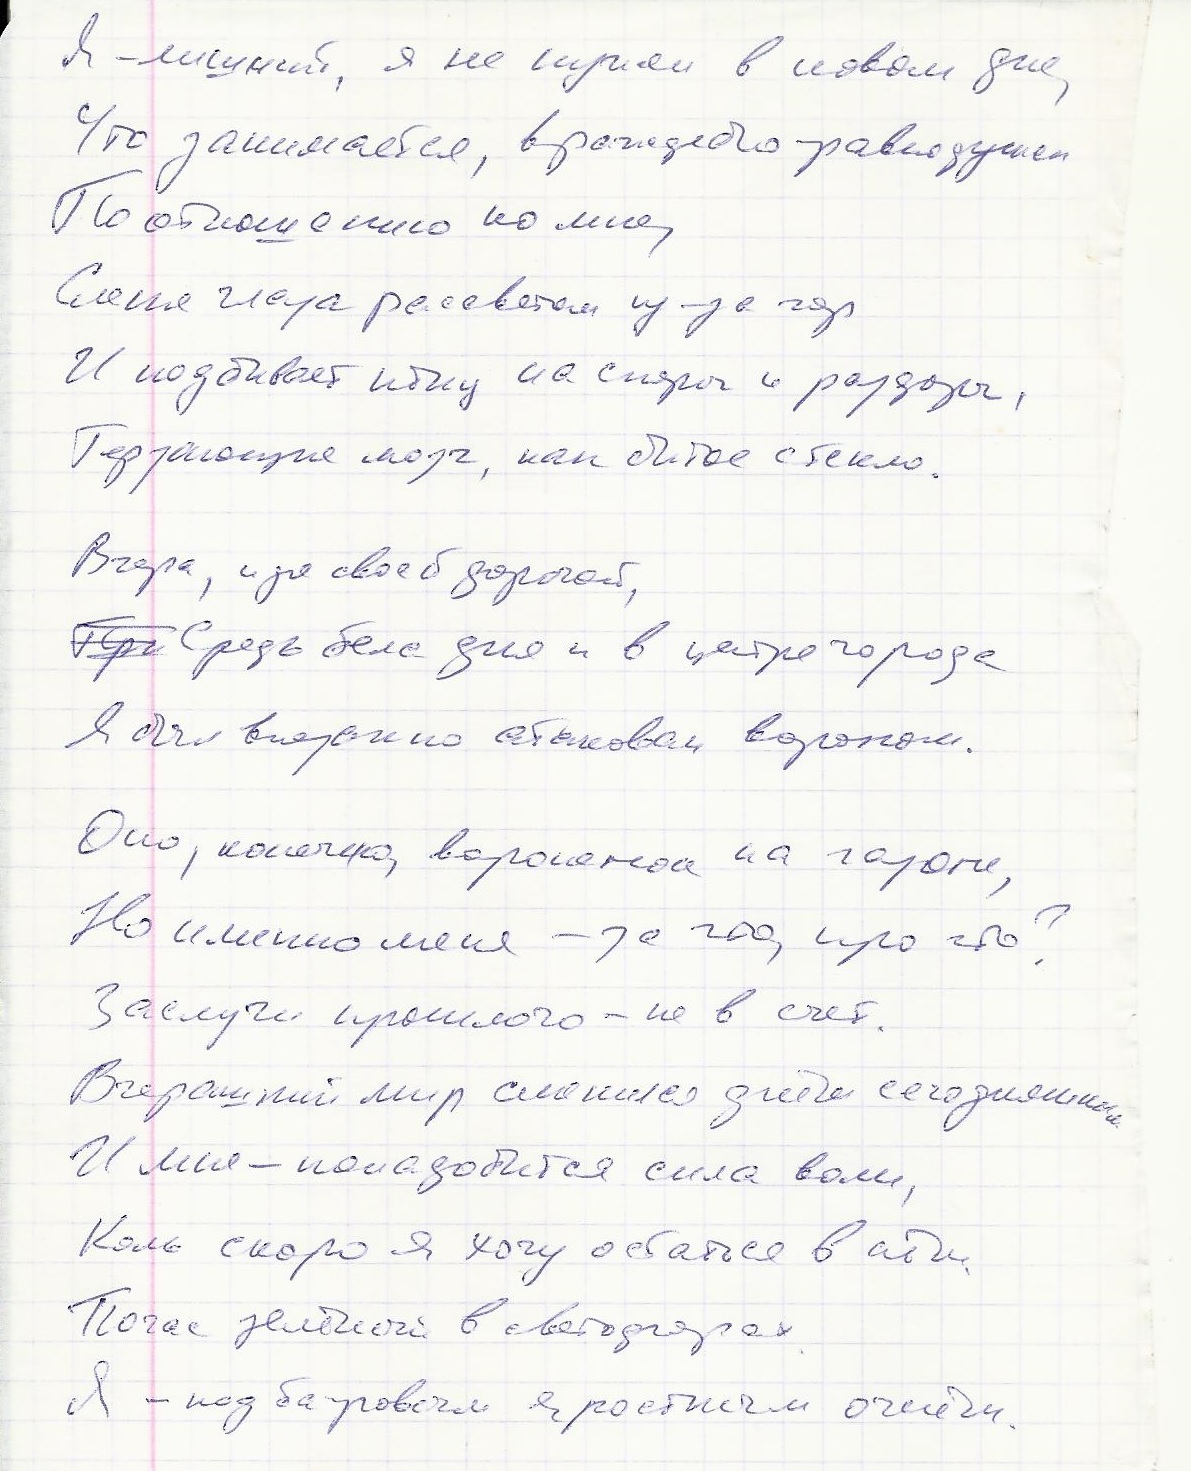 Я – лишний, я не нужен в новом дне,
Что занимается, враждебно-равнодушен
По отношению ко мне,
Слепя глаза рассветом из-за гор
И подбивает птиц на споры и раздоры,
Терзающие мозг, как битое стекло.
Вчера, идя своей дорогой,
При Средь бела дня и в центре города
Я был внезапно атакован вороном.
Оно, конечно, вороненок на газоне,
Но именно меня – за что, про что?
Заслуги прошлого – не в счет.
Вчерашний мир сменился днём сегодняшним
И мне – понадобится сила воли,
Коль скоро я хочу остаться в нём.
Погас зелёный в светодиодах
Я – под багровым яростным огнём.